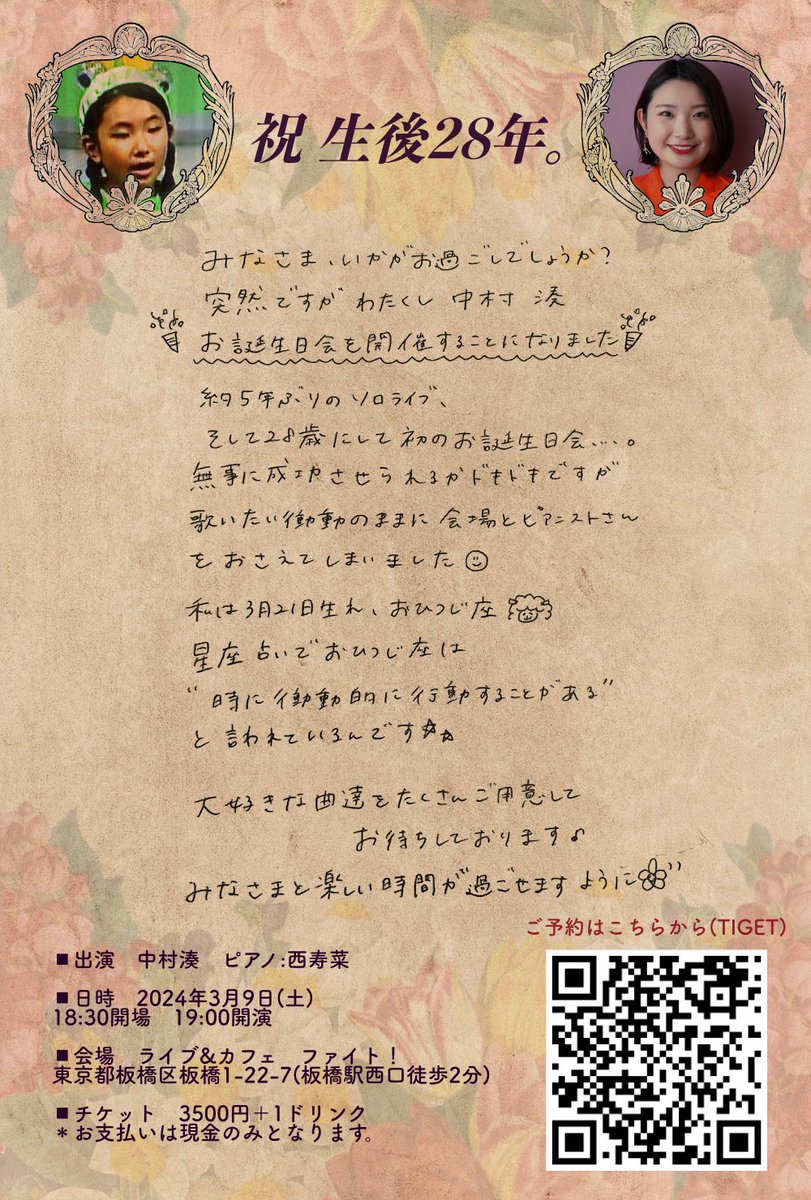 祝 生後28年。
みなさま、いかがお過ごしでしょうか?
突然ですが わたくし 中村 湊
お誕生日会を開催することになりました
約5年ぶりのソロライブ、
そして28歳にして初のお誕生日会...。
無事に成功させられるかドキドキですが
歌いたい衝動のままに会場とピアニストさん
をおさえてしまいました
私は3月21日生れ、おひつじ座
星座占いでおひつじ座は
"時に衝動的に行動することがある"
と言われているんです
大好きな曲達をたくさんご用意して
お待ちしております♪
みなさまと楽しい時間が過ごせますように
ご予約はこちらから(TIGET)
■出演 中村湊 ピアノ:西寿菜
■日時 2024年3月9日(土)
18:30開場 19:00開演
■会場 ライブ&カフェ ファイト!
東京都板橋区板橋1-22-7(板橋駅西口徒歩2分)
■チケット 3500円+1ドリンク
*お支払いは現金のみとなります。